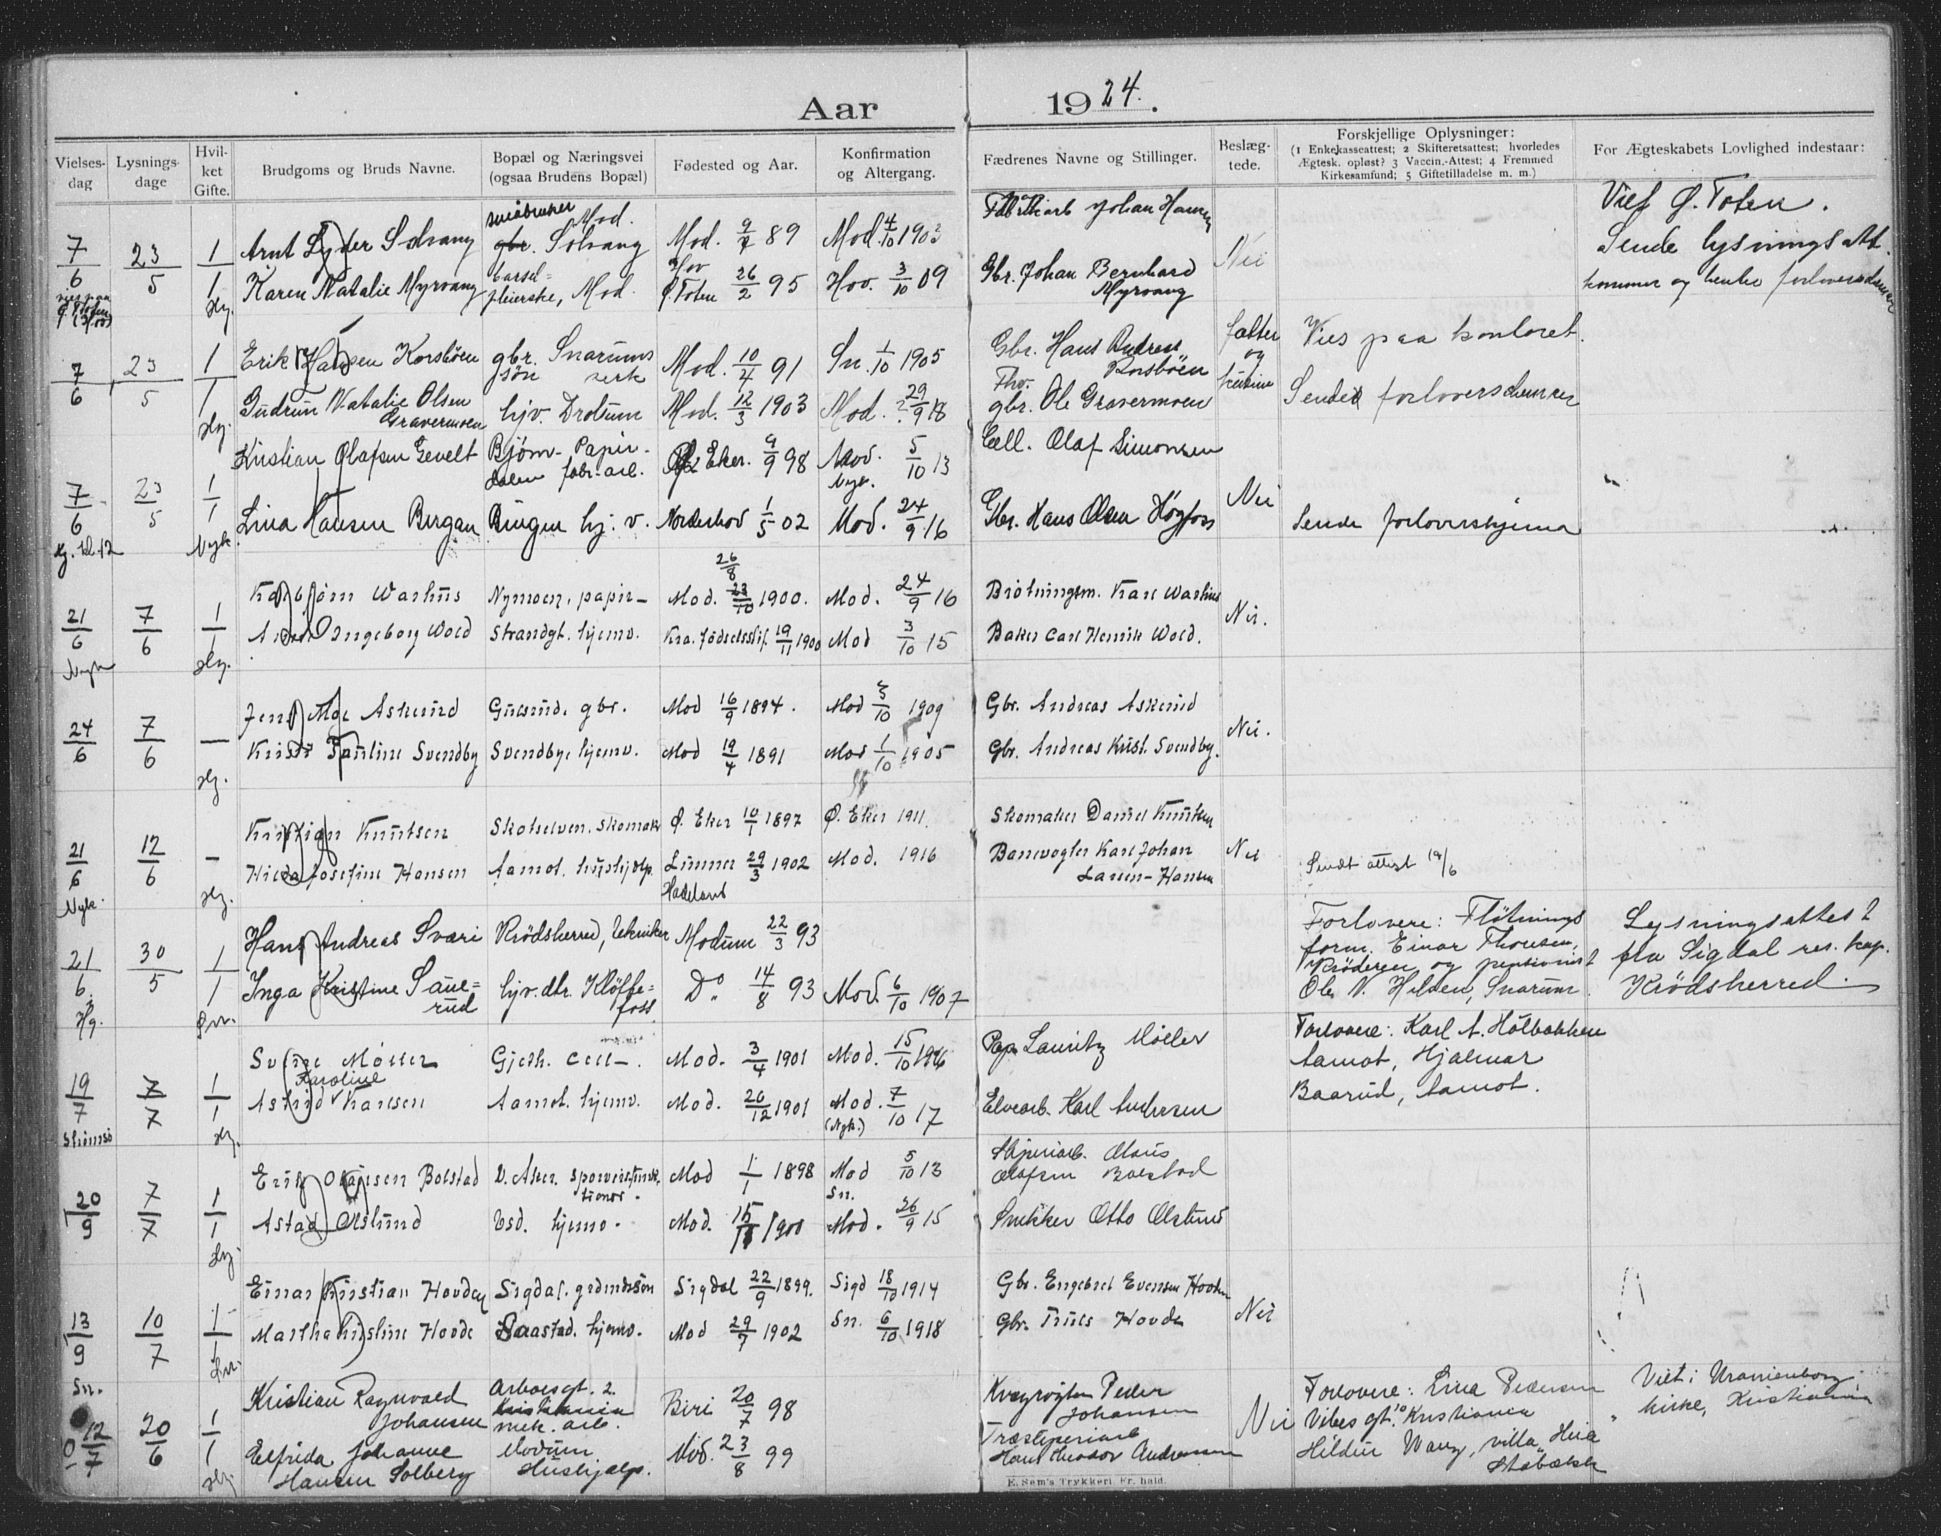 Aar 1924.
Vielses-dag | Lysnings-dage | Hvil-ket Gifte. | Brudgoms og Bruds Navne. | Bopæl og Næringsvei (ogsaa Brudens Bopæl) | Fødested og Aar. | Konfirmation og Altergang. | Fædrenes Navne og Stillinger. | Beslæg-tede. | Forskjellige Oplysninger: (1 Enkekasseattest; 2 Skifteretsattest; hvorledes Ægtesk. opløst? 3 Vaccin.-Attest; 4 Fremmed Kirkesamfund; 5 Giftetilladelse m. m.) | For Ægteskabets Lovlighed indestaar:
7/6 23/5 1 Arnt Lyder Solvang | Mod. gbr. Solvang | Mod. 89 | Mod. 4/10 1903 | Johan Hansen | Nei | Viet Ø. Toten.
1 Karen Natalie Myrvang | barsel-pleierske, Mod. | Hov Ø. Toten 26/2 95 | Hov. 3/10 09 | Gbr. Johan Bernhard Myrvang | Sende lysningsatt.
Hg. | kommer og henter
7/6 23/5 1 Erik Hansen Korsbøen | gbr. Snarums verk | Mod. 10/4 91 | Sn. 1/10 1905 | Gbr. Hans Andreas Korsbøen | fætter og kusine | Vies paa kontoret.
1 Gudrun Natalie Olsen Gravermoen | hjv. Drolsum | Mod. 12/3 1903 | Mod. 29/9 18 | Fhv. gbr. Ole Gravermoen | Sendes forloverskemaer
Hg.
7/6 23/5 1 Kristian Olafsen Gevelt | Bjørn-dalen Papir-fabr. arb. | Ø. Eker. 9/9 98 | Mod. Nyk. 5/10 13 | Cell. Olaf Simonsen | Nei
1 Lina Hansen Bergan | Bingen hj. v. | Norderhov 1/5 02 | Mod. 24/9 16 | Gbr. Hans Olsen Høgfoss | Sende forloverskjema
Hg. kl. 12 | Nyk.
21/6 7/6 1 Warhus | Nymoen, papir- | Mod. 26/8 1900. | Mod. 24/9 16 | Brøtningsm. Karl Warhus | Nei.
1 Ingeborg Wold | Strandgt. hjemv. | Kra. fødselsstif. 19/11 1900 | Mod 3/10 15 | Baker Carl Henrik Wold.
Nyk. | Hg.
24/6 7/6 Jens Moe Askerud | Gulsrud, gbr. | Mod 16/9 1894. | Mod 3/10 1909 | Gbr. Andreas Askerud | Nei.
Pauline Svendby | Svendby, hjemv. | Mod 19/4 1891 | Mod 1/10 1905 | Gbr. Andreas Krist. Svendby.
Hg.
21/6 12/6 Kristian Knutsen | Skotselven, skomak | Ø. Eker 10/1 1897 | Ø. Eker 1911. | Skomaker Daniel Knutsen | Nei
Hilda Josefine Hansen | Aamot. hushjælp. | Lunner Hadeland 29/3 1902 | Mod. 1916 | Banevogter Karl Johan Larsen-Hansen | Sendt attest 19/6
Nyk. | Hg.
21/6 30/5 1 Hans Andreas Sværi | Krødsherred, tekniker | Modum 22/3 93 | Forlovere: Fløtnings | Lysningsattest
form. Einar Thonsen, | fra Sigdal res. kap.
Krøderen og pensionist | Krødsherred.
1 Inga Kristine Saue-rud | hjv. dtr. Kløfte-foss | Do 14/8 93 | Mod. 6/10 1907 | Ole N. Hilsen, Snarum.
Hg. | Snr.
19/7 7/7 1 Sverre Møller | Gjeth. cell- | Mod. 3/4 1901 | Mod. 15/10 1916 | Pap. Lauritz Møller | Forlovere: Karl A. Holbakken
Aamot, Hjalmar
1 Astrid Karoline Karlsen | Aamot. hjemv. | Mod. 20/12 1901 | Mod. (Nyk.) 7/10 17 | Elvearb. Karl Andersen | Baarud, Aamot.
Strømsø | Hg.
20/9 7/7 1 Erik Olausen Bolstad | V. Aker. | Mod 1/1 1898 | Mod Sn. 5/10 13 | Sliperiarb. Olaus Olafsen Bolstad
1 Astrid Ølslund | hjemv. | Mod. 15/11 1900 | Mod. 26/9 15 | Snekker Otto Ølslund
Hg.
13/9 10/7 1 Einar Kristian Hovden | Sigdal. grdmdssøn | Sigdal 22/9 1899. | Sigd 18/10 1914 | Gbr. Engebret Evensen Hovden | Nei
1 Martha Kristine Hovde | Saastad. hjemv. | Mod 29/7 1902 | Sn. 6/10 1918 | Gbr. Truls Hovde
Sn. | Snr.
12/7 20/6 1 Kristian Ragnvald Johansen | Arboesgt. 2. Kristiania mek. arb. | Biri 20/7 98 | Kvægrøgter Peder Johansen | Nei | Forlovere: Lina Pedersen | Viet i Uranienborg
Vibesgt. 10 Kristiania | kirke, Kristiania
1 Elfrida Johanne Hansen Solberg | Modum Hushjælp. | Mod. 23/8 99 | Træsliperiarb. Hans Theodor Andreassen | Hildur Wang, villa Stabæk
Hg.
E. Sem's Trykkeri Fr. hald.